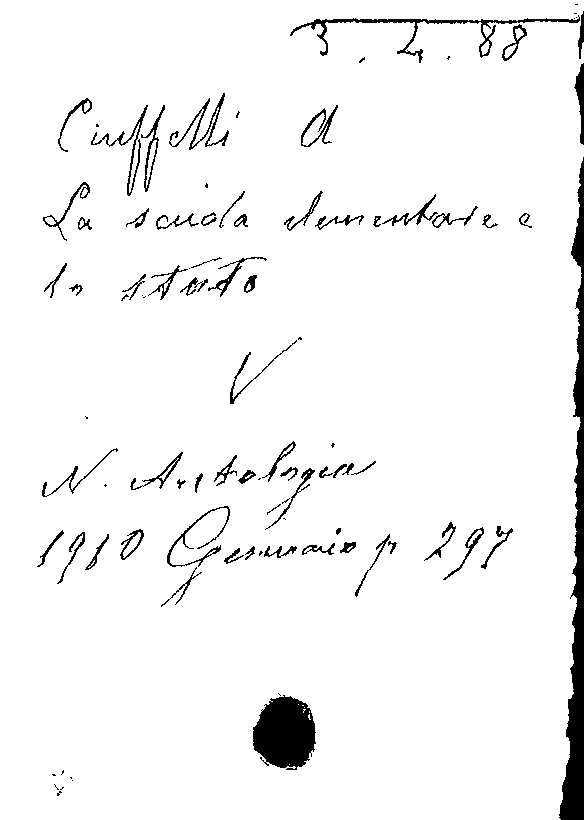 3. 4. 88
Ciuffelli A
La scuola elementare e
lo stato
V
N. Antologia
1910 Gennaio p 297